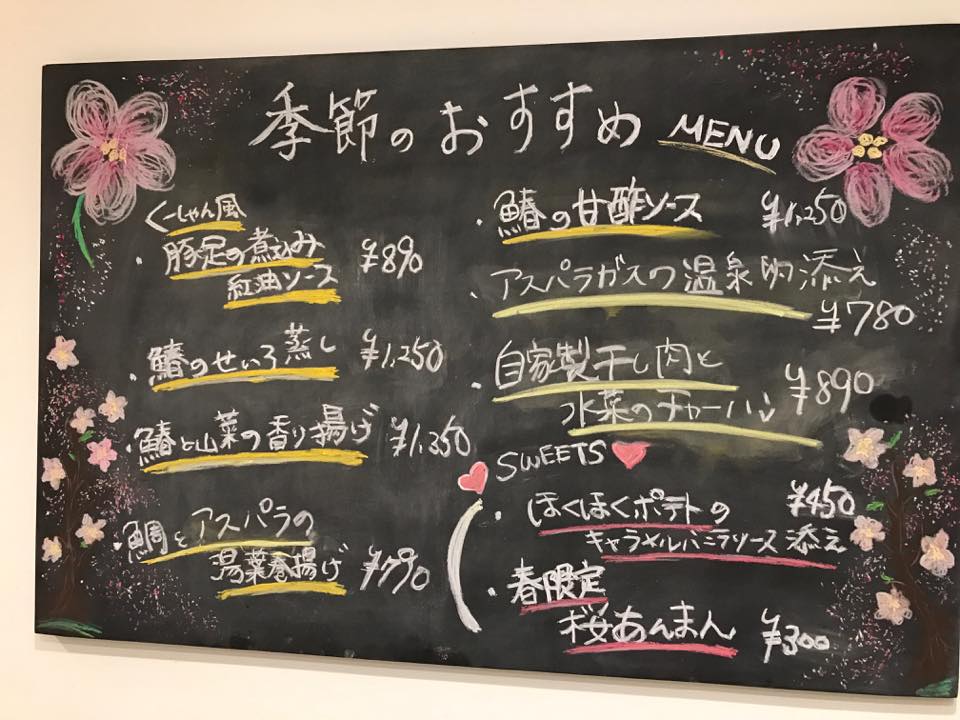 季節のおすすめ MENU
くーしゃん風
・豚足の煮込み ¥890
紅油ソース
・鰆のせいろ蒸し ¥1,250
・鰆と山菜の香り揚げ ¥1,350
・鯛とアスパラの
湯葉巻揚げ ¥790
・鰆の甘酢ソース ¥1,250
・アスパラガスの温泉卵添え
¥780
・自家製干し肉と
水菜のチャーハン ¥890
SWEETS
・ほくほくポテトの ¥450
キャラメルバニラソース添え
・春限定
桜あんまん ¥300